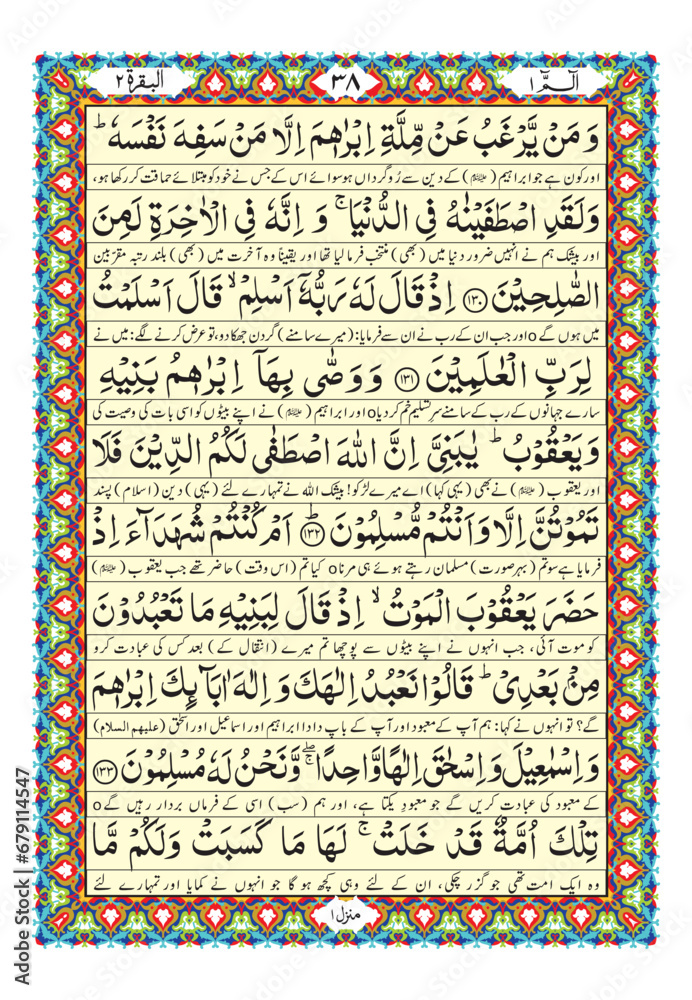 البقرة ٢
٣٨
الٓمّٓ ١
وَ مَنْ یَّرْغَبُ عَنْ مِّلَّةِ اِبْرٰهٖمَ اِلَّا مَنْ سَفِهَ نَفْسَهٗ ؕ
اور کون ہے جو ابراہیم (ﷺ) کے دین سے رُوگرداں ہو سوائے اس کے جس نے خود کو مبتلائے حماقت کر رکھا ہو،
وَلَقَدِ اصْطَفَیْنٰهُ فِی الدُّنْیَا ۚ وَ اِنَّهٗ فِی الْاٰخِرَةِ لَمِنَ
اور بیشک ہم نے انہیں ضرور دنیا میں (بھی) منتخب فرما لیا تھا اور یقیناً وہ آخرت میں (بھی) بلند رتبہ مقرّبین
الصّٰلِحِیْنَ ﴿۱۳۰﴾ اِذْ قَالَ لَهٗ رَبُّهٗۤ اَسْلِمْ ۙ قَالَ اَسْلَمْتُ
میں ہوں گے o اور جب ان کے رب نے ان سے فرمایا: (میرے سامنے) گردن جھکا دو، تو عرض کرنے لگے: میں نے
لِرَبِّ الْعٰلَمِیْنَ ﴿۱۳۱﴾ وَ وَصّٰی بِهَاۤ اِبْرٰهٖمُ بَنِیْهِ
سارے جہانوں کے رب کے سامنے سرِ تسلیم خم کر دیا o اور ابراہیم (ﷺ) نے اپنے بیٹوں کو اسی بات کی وصیت کی
وَیَعْقُوْبُ ؕ یٰبَنِیَّ اِنَّ اللّٰهَ اصْطَفٰی لَكُمُ الدِّیْنَ فَلَا
اور یعقوب (ﷺ) نے بھی (یہی کہا) اے میرے لڑکو! بیشک اللہ نے تمہارے لئے (یہی) دین (اسلام) پسند
تَمُوْتُنَّ اِلَّا وَاَنْتُمْ مُّسْلِمُوْنَ ؕ﴿۱۳۲﴾ اَمْ كُنْتُمْ شُهَدَآءَ اِذْ
فرمایا ہے سو تم (بہر صورت) مسلمان رہتے ہوئے ہی مرنا o کیا تم (اس وقت) حاضر تھے جب یعقوب (ﷺ)
حَضَرَ یَعْقُوْبَ الْمَوْتُ ۙ اِذْ قَالَ لِبَنِیْهِ مَا تَعْبُدُوْنَ
کو موت آئی، جب انہوں نے اپنے بیٹوں سے پوچھا تم میرے (انتقال کے) بعد کس کی عبادت کرو
مِنْۢ بَعْدِیْ ؕ قَالُوْا نَعْبُدُ اِلٰهَكَ وَ اِلٰهَ اٰبَآىِٕكَ اِبْرٰهٖمَ
گے؟ تو انہوں نے کہا: ہم آپ کے معبود اور آپ کے باپ دادا ابراہیم اور اسماعیل اور اسحٰق (علیھم السلام)
وَ اِسْمٰعِیْلَ وَ اِسْحٰقَ اِلٰهًا وَّاحِدًا ۖۚ وَّنَحْنُ لَهٗ مُسْلِمُوْنَ ﴿۱۳۳﴾
کے معبود کی عبادت کریں گے جو معبودِ یکتا ہے، اور ہم (سب) اسی کے فرماں بردار رہیں گے o
تِلْكَ اُمَّةٌ قَدْ خَلَتْ ۚ لَهَا مَا كَسَبَتْ وَلَكُمْ مَّا
وہ ایک امت تھی جو گزر چکی، ان کے لئے وہی کچھ ہو گا جو انہوں نے کمایا اور تمہارے لئے
منزل ١
Adobe Stock | #679114547